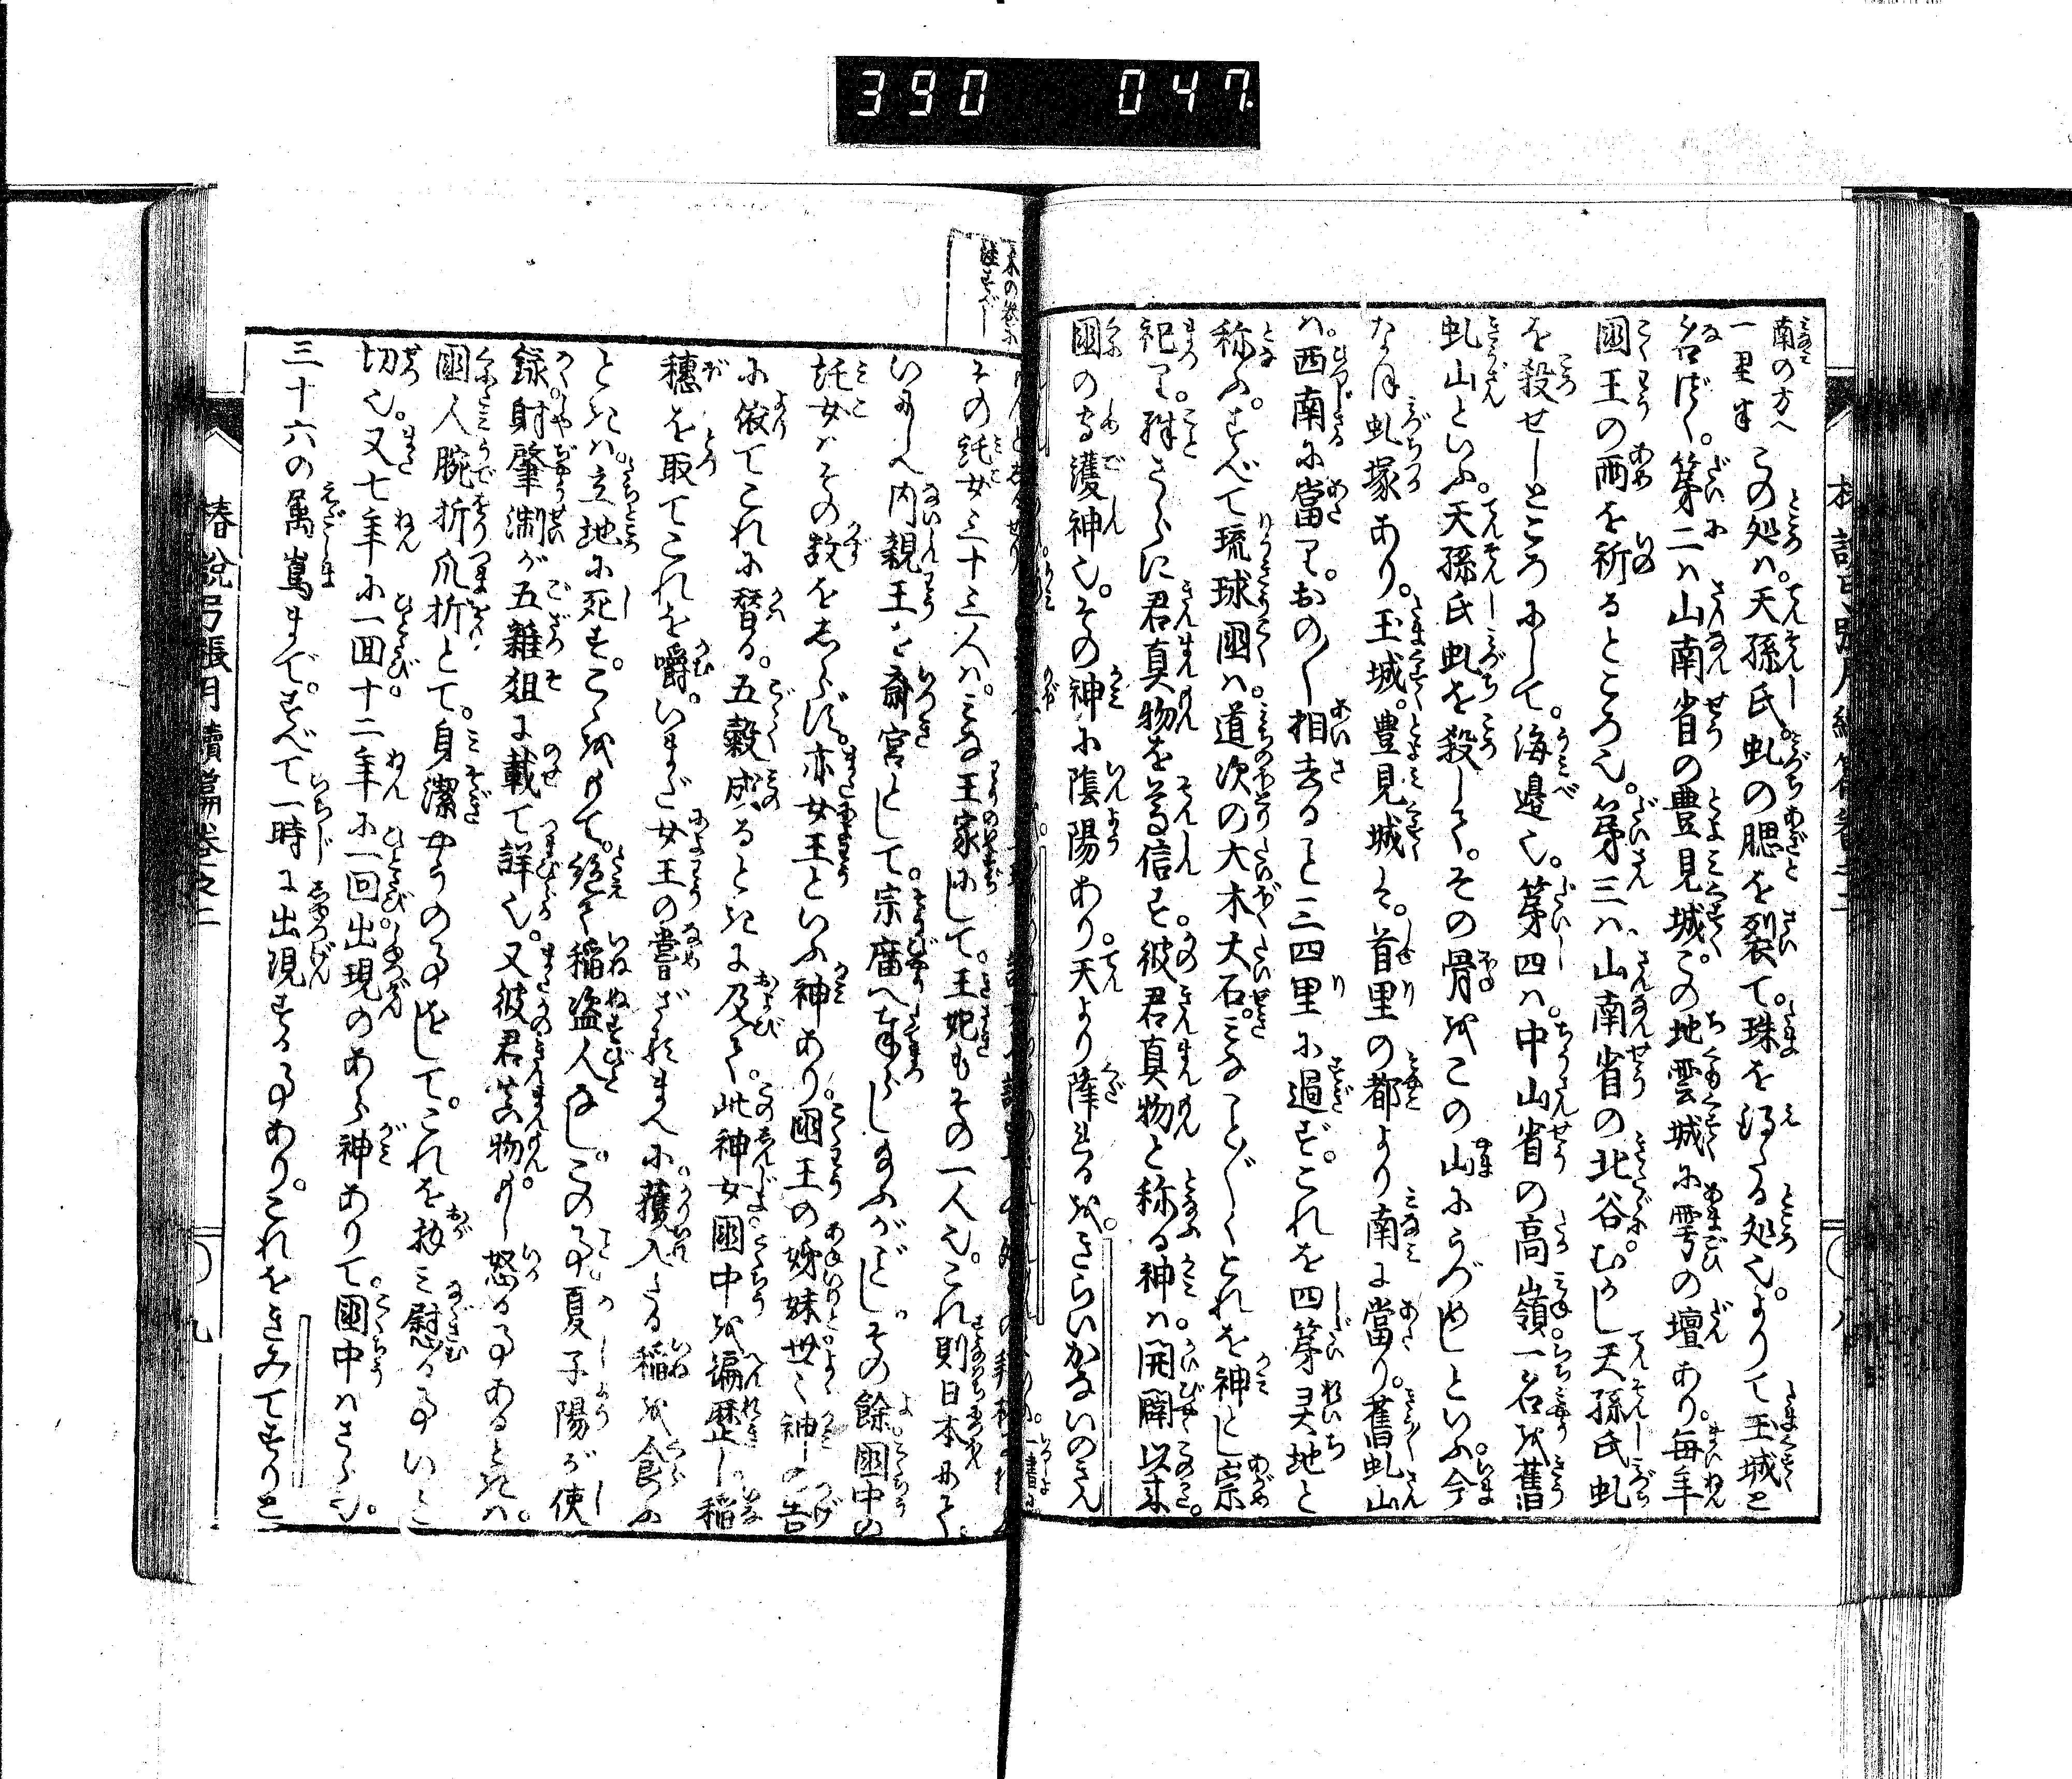 390 047.
南の方へ
一里半
この処は。天孫氏。虬の腮を裂て。珠を得たる処也。よりて玉城と
名づく。第二は山南省の豊見城。この地雲城に雩の壇あり。毎年
國王の雨を祈るところ也。第三は、山南省の北谷。むかし天孫氏虬
を殺せしところにして。海邉也。第四は。中山省の高嶺。一名を舊
虬山といふ。天孫氏虬を殺して。その骨をこの山にうづめしといふ。今
なほ虬塚あり。玉城。豊見城は。首里の都より南に當り。舊虬山
は。西南に當て。おの〱相去ること三四里に過ず。これを四第灵地と
称ふ。すべて琉球國は。道次の大木大石。みなこと〲くこれを神とし宗
祀て。殊さらに君真物を尊信す。彼君真物と称る神は。開闢以来。
國の守護神也。その神に陰陽あり。天より降れるを。きらいかないのきん
その託女三十三人は。みな王家にして。王妃もその一人也。これ則日本にて。
いにしへ内親王を斎宮として。宗廟へ奉らし給ふがごとし。その餘國中の
託女はその数をしらず。亦女王といふ神あり。國王の姉妹世〻神の告
に依てこれに替る。五穀成るときに及て。此神女國中を遍歴し。稲
穗を取てこれを嚼。いまだ女王の嘗ざるまへに。穫入たる稲を食ふ
ときは。立地に死す。こゝをもて。絶て稲盗人なし。この事夏子陽が使
録。射肇淛が五雜俎に載て詳也。又彼君真物もし怒る事あるときは。
國人腕折爪折とて。身潔やうの事をして。これを拔み慰る事いと
切也。又七年に一回十二年に一回出現のあら神ありて。國中はさら也。
三十六の属嶌まで。すべて一時に出現する事あり。これをきみてすりと
椿說弓張月續篇卷之二